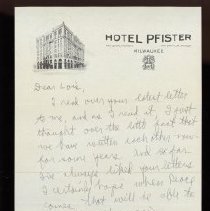 HOTEL PFISTER
MILWAUKEE
Dear Lois,
I read over your latest letter
to me, and as I read it, I just
thought over the full fact that
we have written each other now
for some years. And so far
I've always liked your letters
I certainly hope when Peace
comes, that will be able to